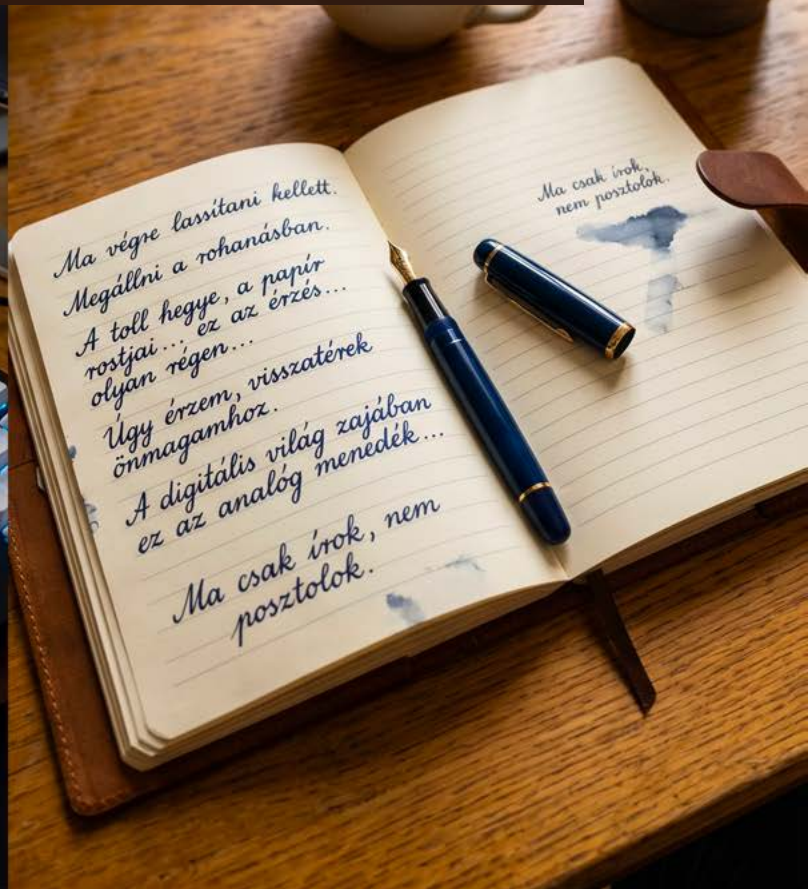 Ma végre lassítani kellett.
Megállni a rohanásban.
A toll hegye, a papír
rostjai... ez az érzés...
olyan régen...
Úgy érzem, visszatérek
önmagamhoz.
A digitális világ zajában
ez az analóg menedék...
Ma csak írok, nem
posztolok.
Ma csak írok,
nem posztolok.